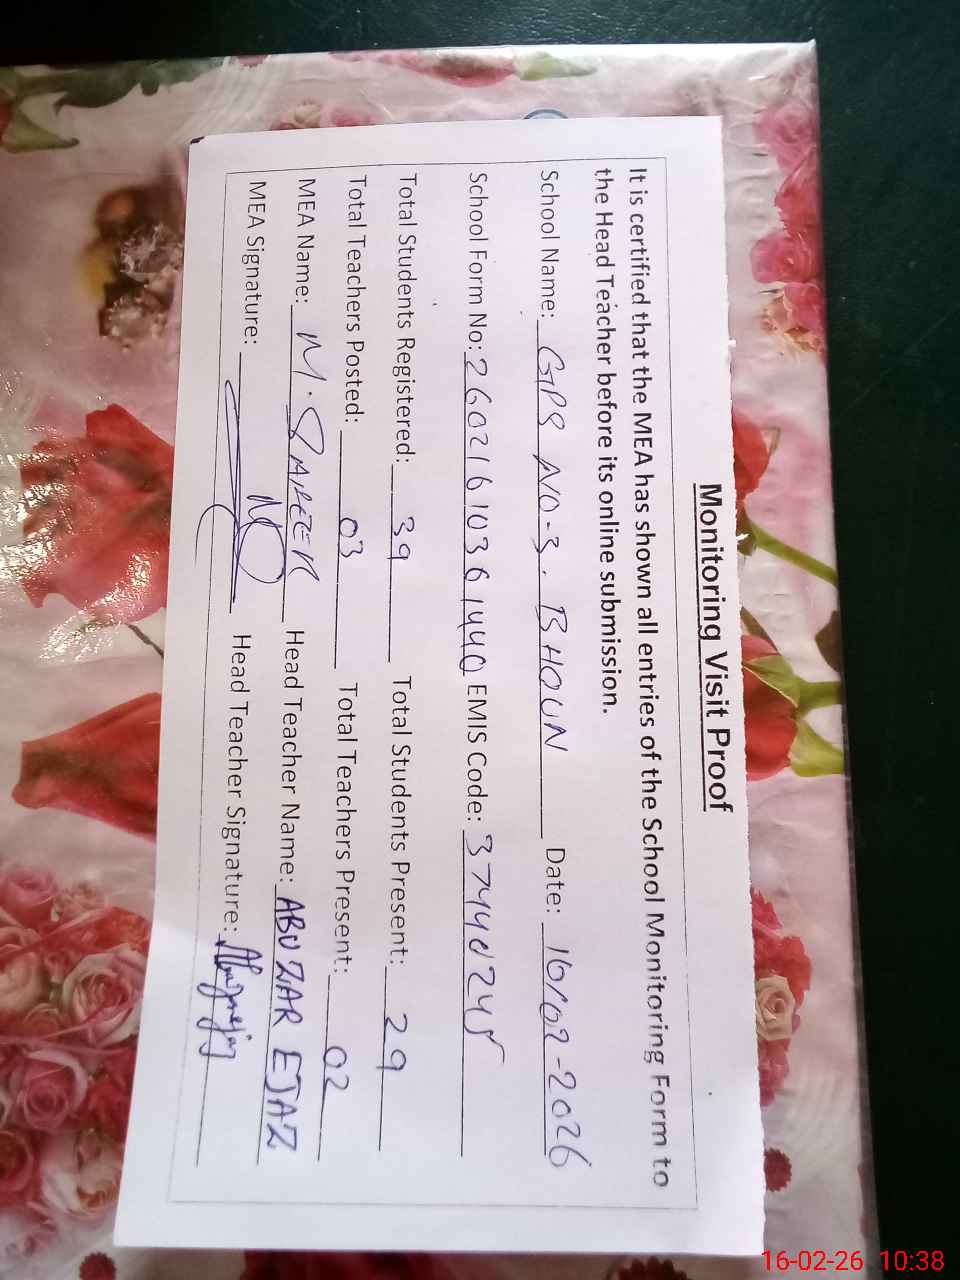 Monitoring Visit Proof
It is certified that the MEA has shown all entries of the School Monitoring Form to
the Head Teacher before its online submission.
School Name: GPS NO-3. BHOUN Date: 16-02-2026
School Form No: 26021610361440 EMIS Code: 37440245
Total Students Registered: 39 Total Students Present: 29
Total Teachers Posted: 03 Total Teachers Present: 02
MEA Name: M. Head Teacher Name: ABUZAR EJAZ
MEA Signature: Head Teacher Signature:
16-02-26 10:38